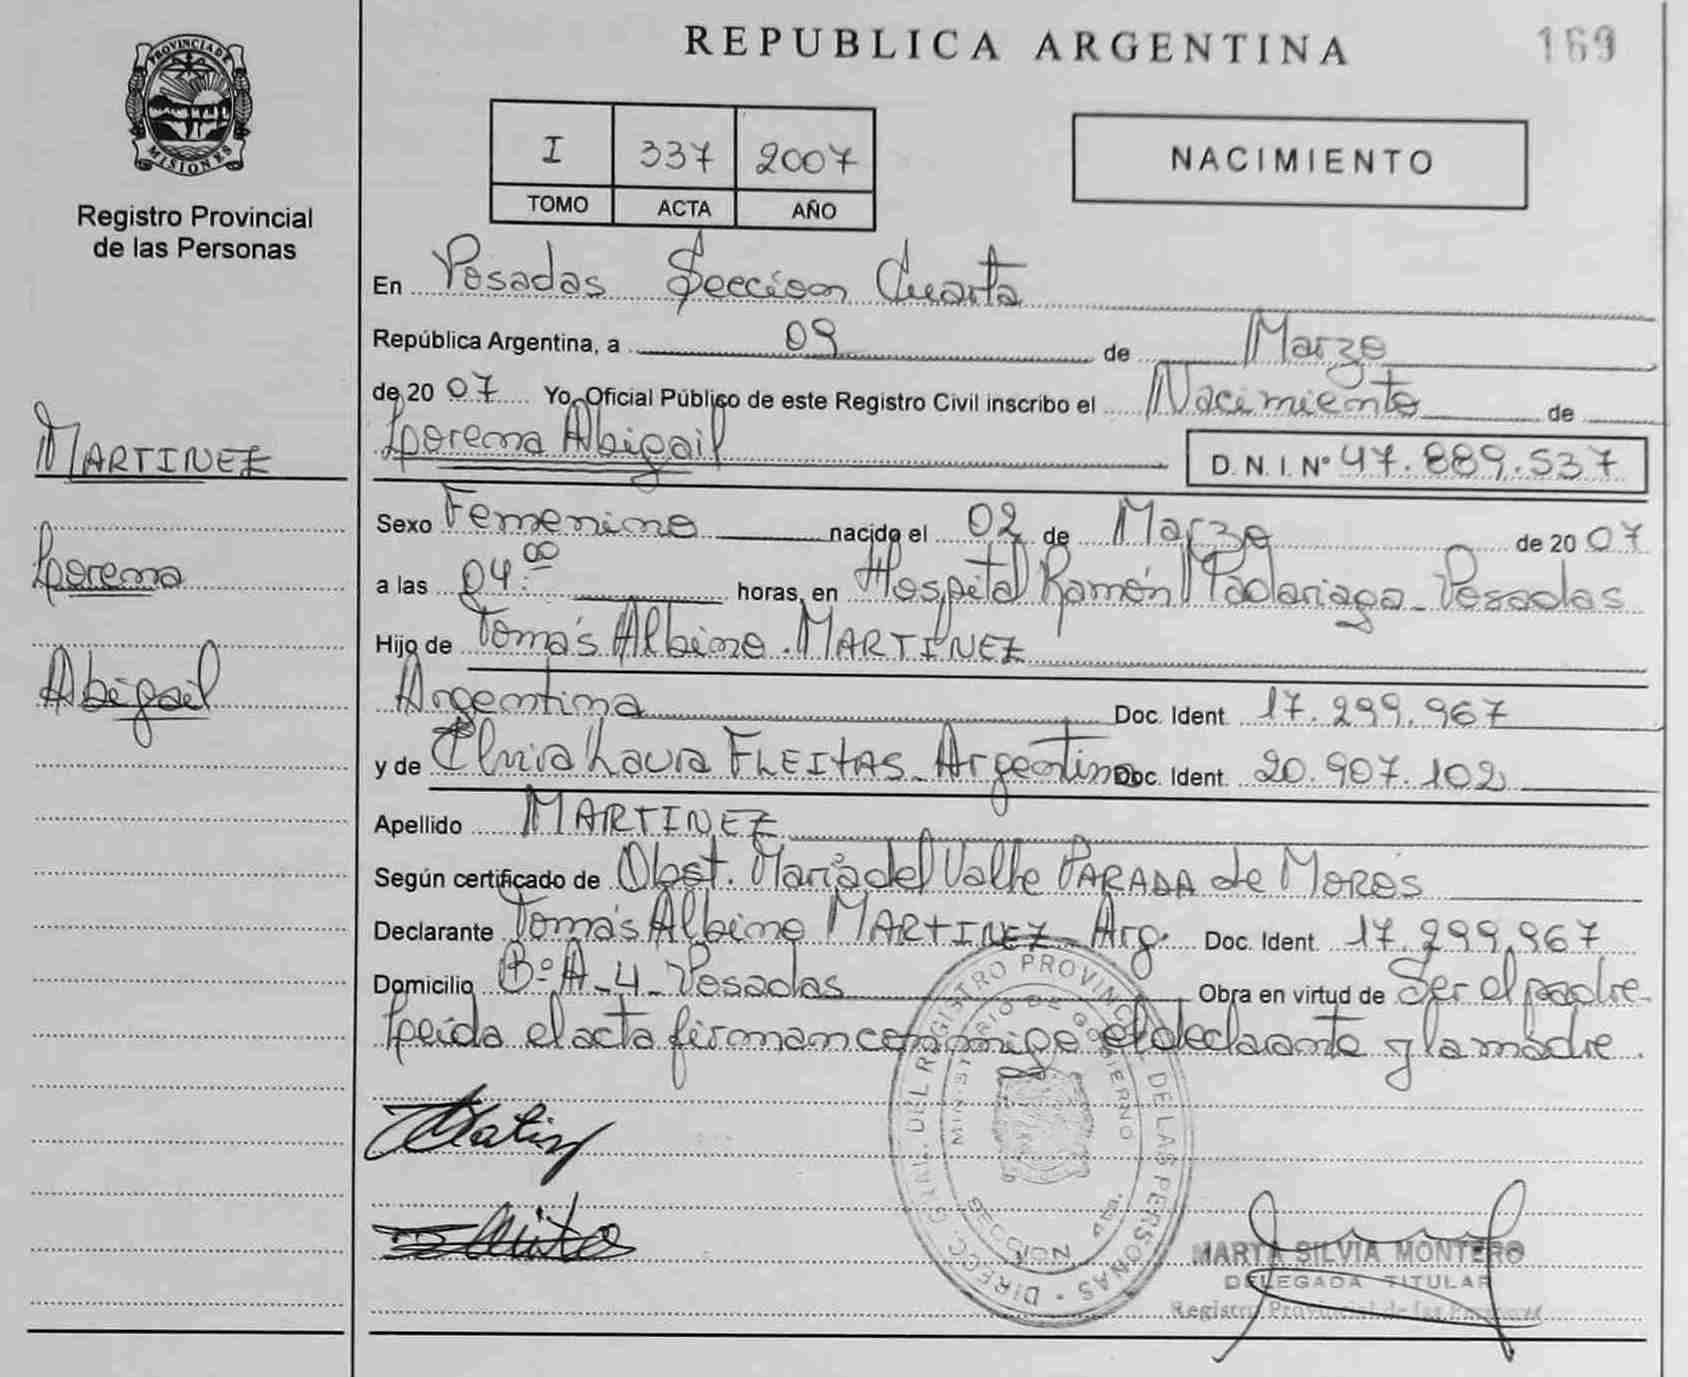 REPUBLICA ARGENTINA
169
PROVINCIA DE MISIONES
Registro Provincial
de las Personas
I 337 2007
TOMO ACTA AÑO
NACIMIENTO
En Posadas Sección Cuarta
República Argentina, a 09 de Marzo
de 2007 Yo, Oficial Público de este Registro Civil inscribo el Nacimiento de
Lorena Abigail D. N. I. Nº 47.889.537
MARTINEZ
Lorena
Abigail
Sexo Femenino nacido el 02 de Marzo de 2007
a las 04:00 horas, en Hospital Ramón Madariaga - Posadas
Hijo de Tomás Albino MARTINEZ
Argentina Doc. Ident. 17.299.967
y de Elvira Laura FLEITAS - Argentina Doc. Ident. 20.907.102
Apellido MARTINEZ
Según certificado de Obst. María del Valle PARADA de MOROS
Declarante Tomás Albino MARTINEZ - Arg. Doc. Ident. 17.299.967
Domicilio Bº A-4 - Posadas Obra en virtud de Ser el padre
Leída el acta firman conmigo el declarante y la madre.
DIRECC. GRAL. DEL REGISTRO PROVINCIAL DE LAS PERSONAS
MINISTERIO DE GOBIERNO
SECCION 4ta.
MARTA SILVIA MONTERO
DELEGADA TITULAR
Registro Provincial de las Personas